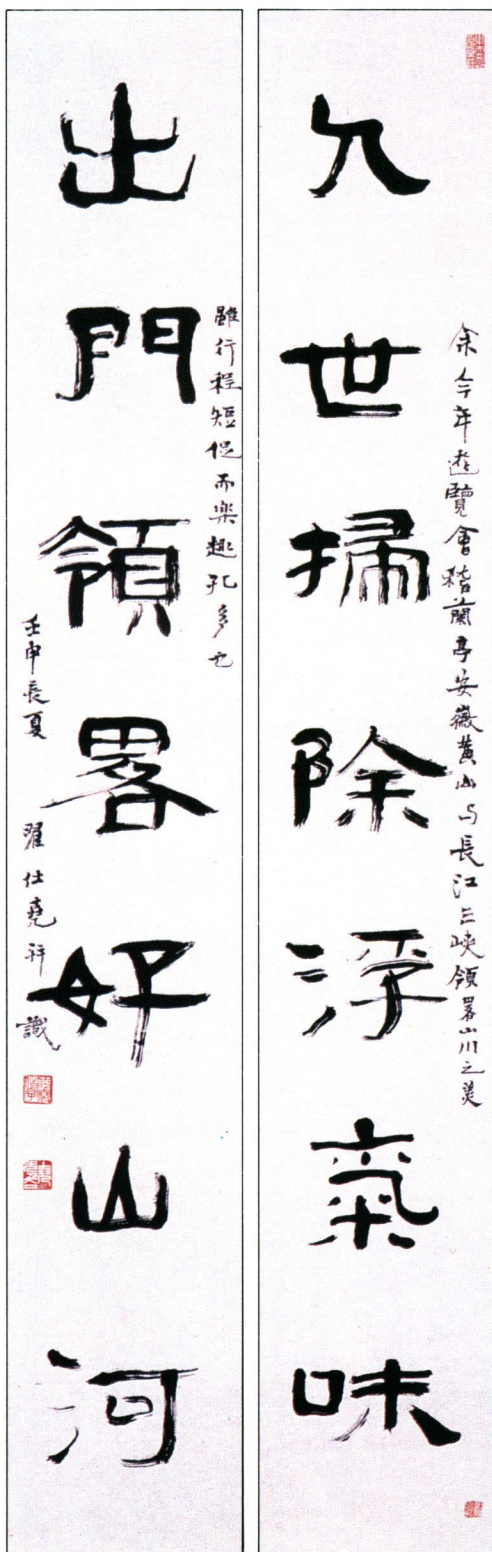 入世掃除浮氣味
余今年遊覽會稽蘭亭安徽黃山与長江三峽領畧山川之美
出門領畧好山河
雖行程短促而樂趣孔多也
壬申長夏 翟仕堯并識